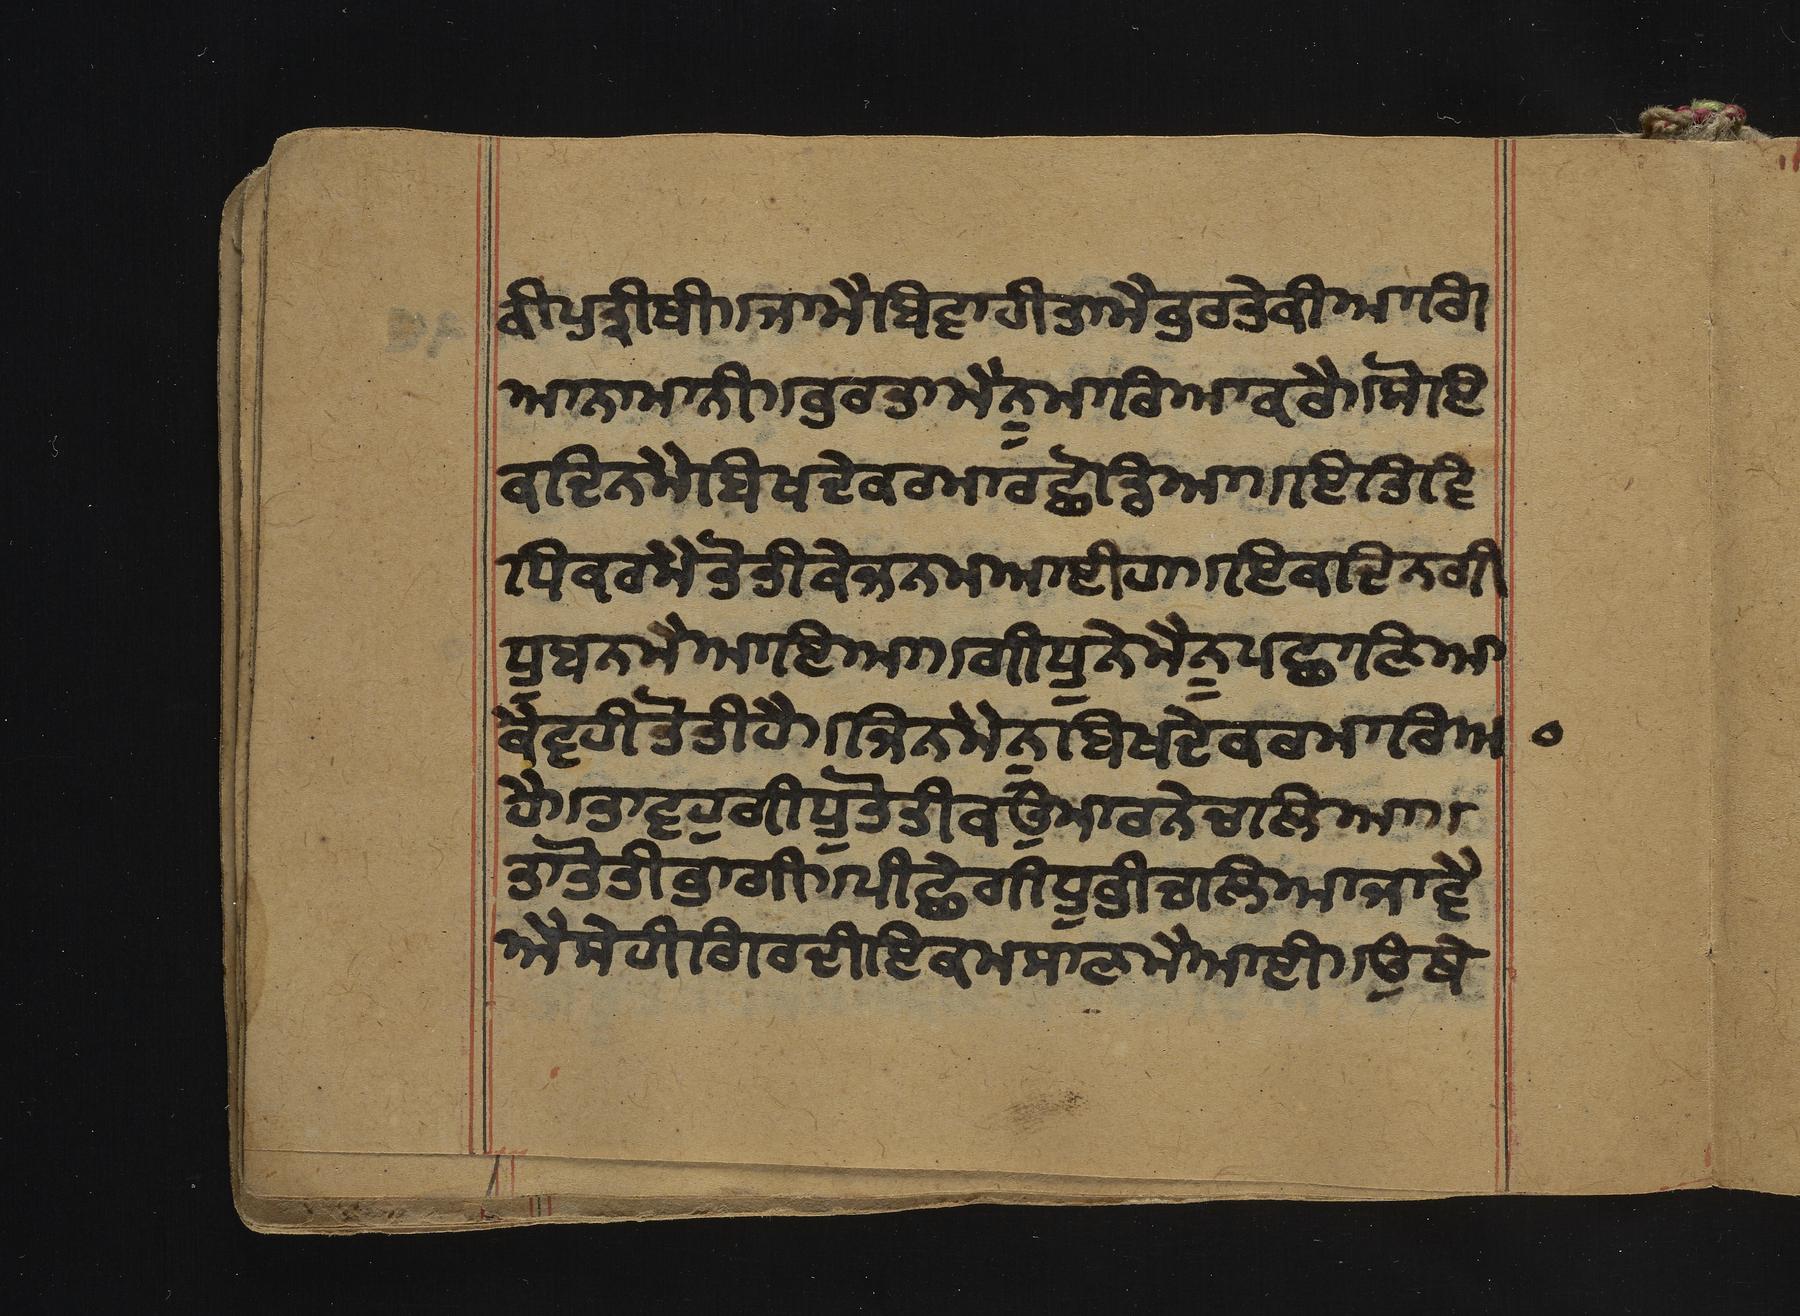 ਕੀਪੁਤ੍ਰੀਥੀ।ਜਾਮੈਬਿਵਾਹੀਤਾਮੈਕੁਰਤੇਕੀਆਗਿ
ਆਨਾਮਾਨੀ।ਕੁਰਤਾਮੈਨੂਮਾਰਿਆਕਰੈ।ਸੋਇ
ਕਦਿਨਮੈਬਿਖਦੇਕਰਮਾਰਛੋੜਿਆ।ਇਤਿਵਿ
ਧਿਕਰਮੈਤੋਤੀਕੇਜਨਮਆਈਹਾ।ਇਕਦਿਨਗੀ
ਧੁਬਨਮੈਆਇਆ।ਗੀਧੁਨੇਮੈਨੂਪਛਾਣਿਆ
ਕੇਵਹੀਤੋਤੀਹੈ।ਜਿਨਮੇਨੂਬਿਖਦੇਕਰਮਾਰਿਅ੦
ਹੈ।ਤਾਵਹੁਗੀਧੁਤੋਤੀਕਉਮਾਰਨੇਚਾਲਿਆ।
ਤਾਤੋਤੀਭਾਗੀ।ਪੀਛੇਗੀਧੁਭੀਚਲਿਆਜਾਵੈ
ਐਸੇਹੀਗਿਰਦੀਇਕਮਸਾਣਮੈਆਈ।ਉਥੇ